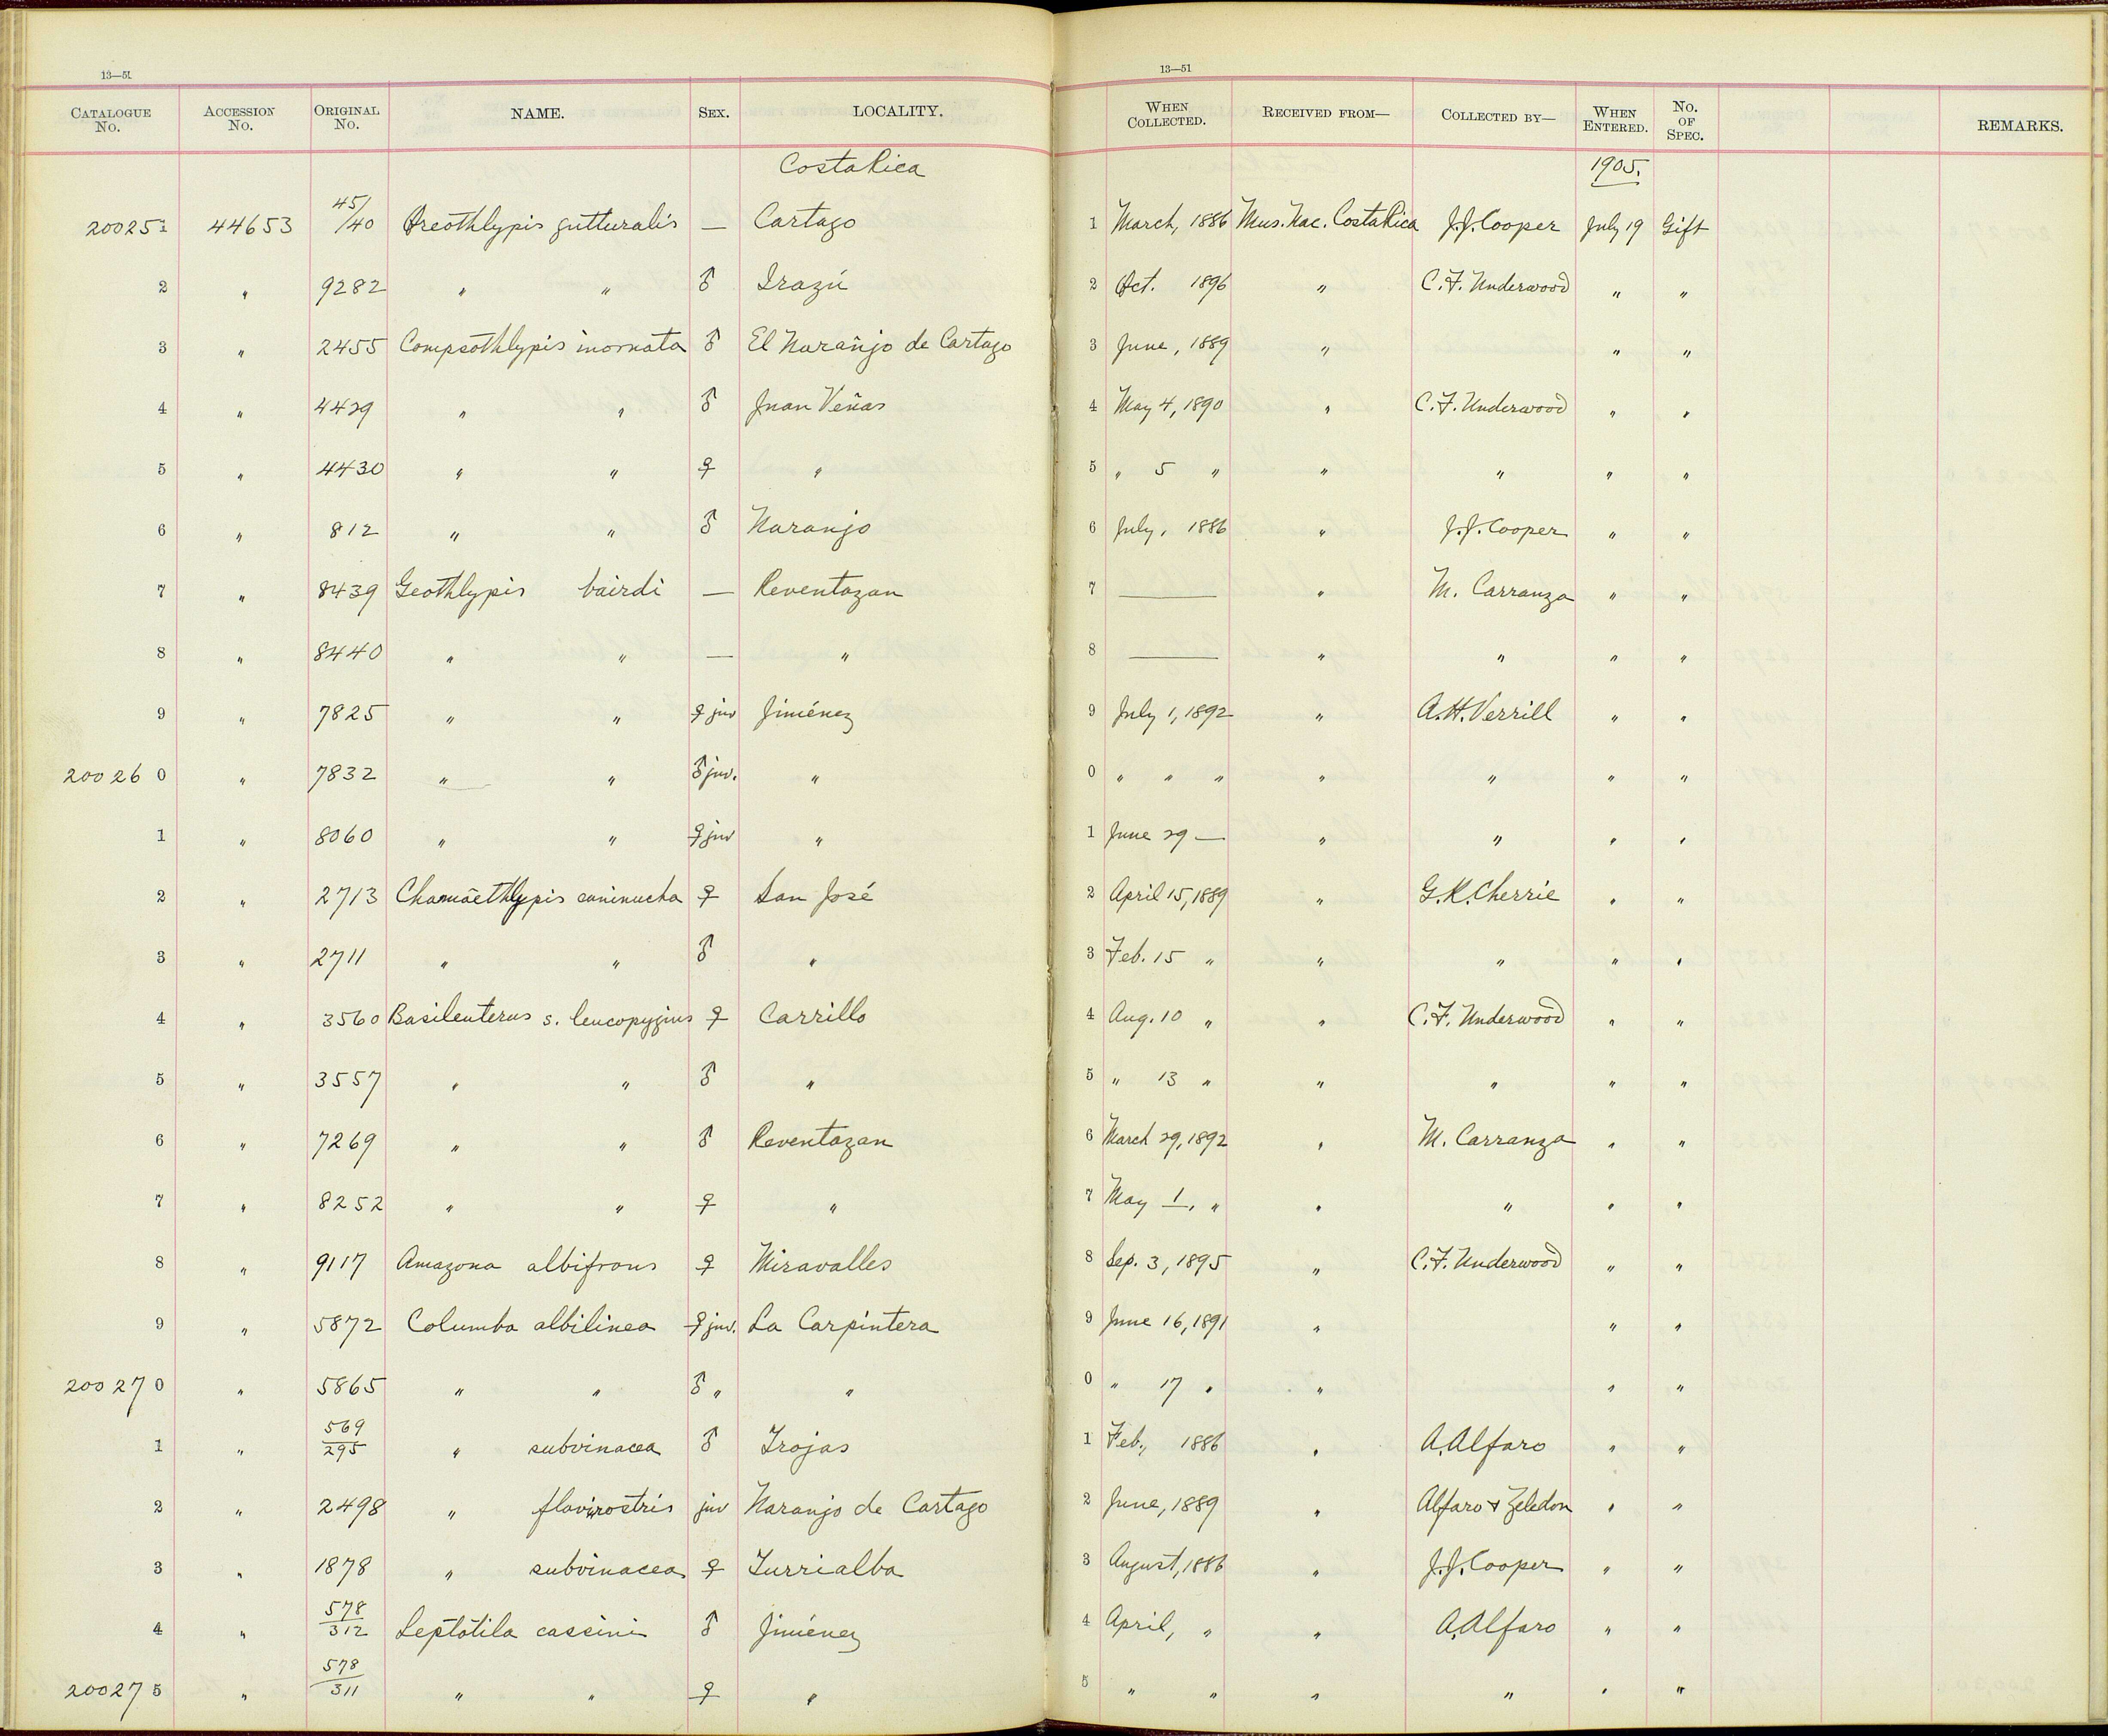 13—51
13—51
CATALOGUE No. ACCESSION No. ORIGINAL No. NAME. SEX. LOCALITY. WHEN COLLECTED. RECEIVED FROM— COLLECTED BY— WHEN ENTERED. No. OF SPEC. REMARKS.
Costa Rica 1905.
200251 44653 45/40 Oreothlypis gutturalis — Cartago 1 March, 1886 Mus. Nac. Costa Rica J.J. Cooper July 19 Gift
2 " 9282 " " ♂ Irazú 2 Oct. 1896 " C.F. Underwood " "
3 " 2455 Compsothlypis inornata ♂ El Narañjo de Cartago 3 June, 1889 " " "
4 " 4429 " " ♂ Juan Veñas 4 May 4, 1890 " C.F. Underwood " "
5 " 4430 " " ♀ " 5 " 5 " " " " "
6 " 812 " " ♂ Naranjo 6 July, 1886 " J.J. Cooper " "
7 " 8439 Geothlypis bairdi — Reventazan 7 — " M. Carranza " "
8 " 8440 " " — " 8 — " " " "
9 " 7825 " " ♀ juv Jiménez 9 July 1, 1892 " A.H. Verrill " "
200260 " 7832 " " ♂ juv. " 0 " " " " " " "
1 " 8060 " " ♀ juv " 1 June 29 — " " " "
2 " 2713 Chamaethlypis caninucha ♀ San José 2 April 15, 1889 " G.K. Cherrie " "
3 " 2711 " " ♂ " 3 Feb. 15 " " " " "
4 " 3560 Basileuterus s. leucopygius ♀ Carrillo 4 Aug. 10 " " C.F. Underwood " "
5 " 3557 " " ♂ " 5 " 13 " " " " "
6 " 7269 " " ♂ Reventazan 6 March 29, 1892 " M. Carranza " "
7 " 8252 " " ♀ " 7 May 1, " " " " "
8 " 9117 Amazona albifrons ♀ Miravalles 8 Sep. 3, 1895 " C.F. Underwood " "
9 " 5872 Columba albilinea ♀ juv. La Carpintera 9 June 16, 1891 " " "
200270 " 5865 " " ♂ " " 0 " 17 " " " "
1 " 569/295 " subvinacea ♂ Trojas 1 Feb., 1886 " A. Alfaro " "
2 " 2498 " flavirostris juv Naranjo de Cartago 2 June, 1889 " Alfaro & Zeledon " "
3 " 1878 " subvinacea ♀ Turrialba 3 August, 1886 " J.J. Cooper " "
4 " 578/312 Leptotila cassini ♂ Jiménez 4 April, " " A. Alfaro " "
200275 " 578/311 " " ♀ " 5 " " " " " "